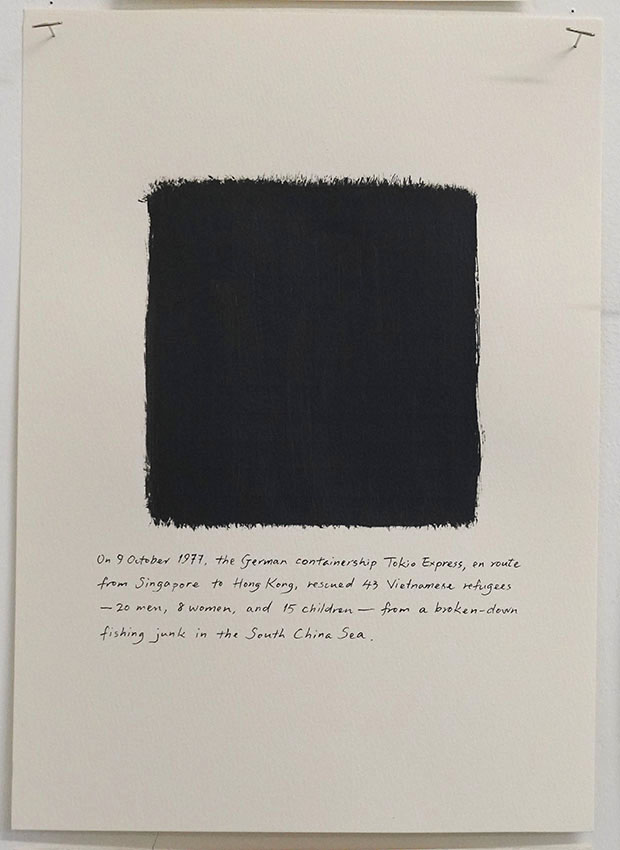 On 9 October 1977, the German containership Tokio Express, en route
from Singapore to Hong Kong, rescued 43 Vietnamese refugees
— 20 men, 8 women, and 15 children — from a broken-down
fishing junk in the South China Sea.